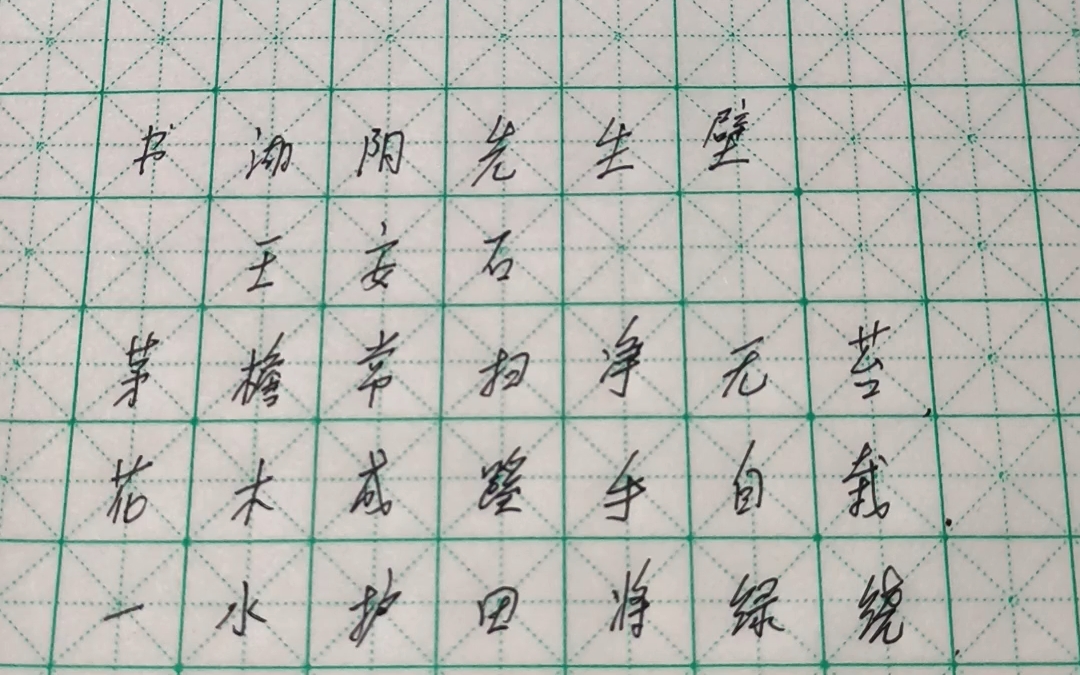 书湖阴先生壁
王安石
茅檐常扫净无苔,
花木成蹊手自栽.
一水护田将绿绕,